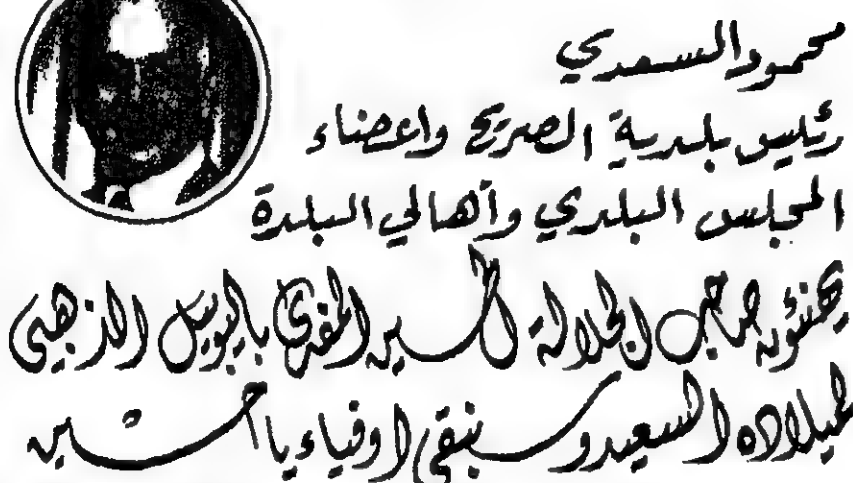 محمود السعدي
رئيس بلدية الصريح واعضاء
المجلس البلدي وأهالي البلدة
يهنئون صاحب الجلالة الحسين المفدى باليوبيل الذهبي
لميلاده السعيد وسنبقى اوفياء يا حسين